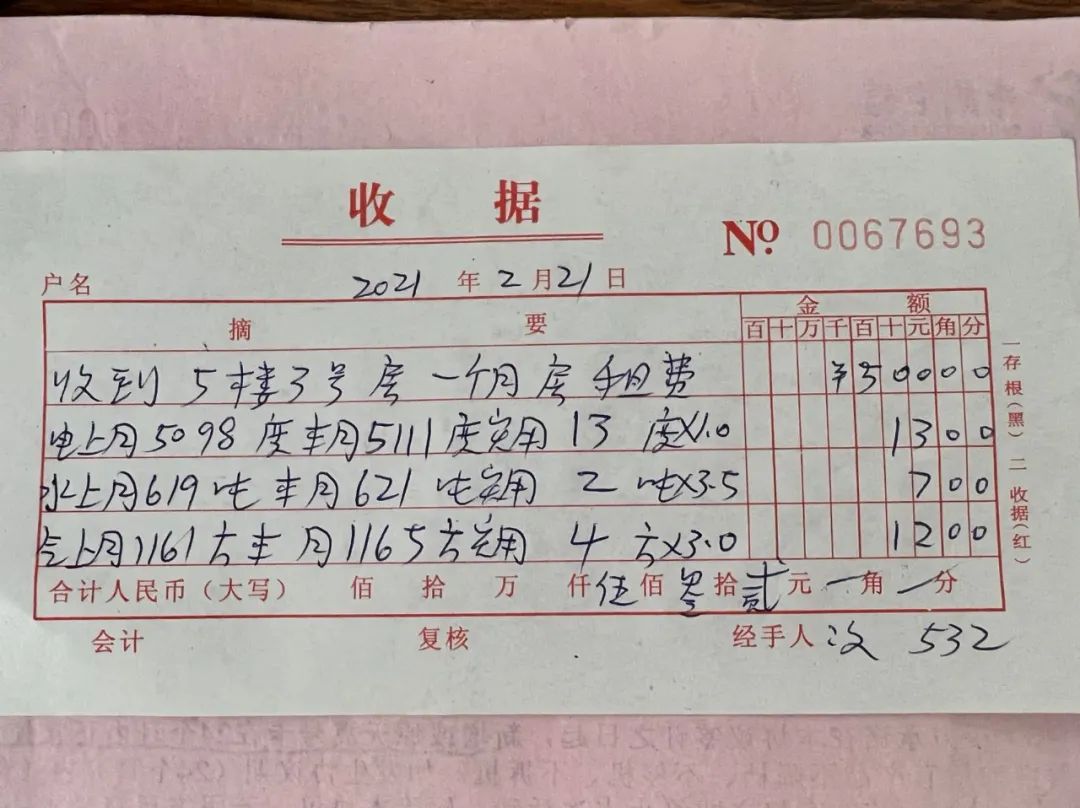 收 据
No 0067693
户名 2021 年 2 月 21 日
摘 要 金 额
百 十 万 千 百 十 元 角 分
收到 5楼3号房 一个月房租费 ¥50000
电上月5098度本月5111度实用 13 度x1.0 1300
水上月619吨本月621吨实用 2 吨x3.5 700
气上月1161方本月1165方实用 4 方x3.0 1200
合计人民币（大写） 佰 拾 万 仟 伍 佰 叁 拾 贰 元 一 角 一 分
会计 复核 经手人 532
一存根(黑) 二收据(红)